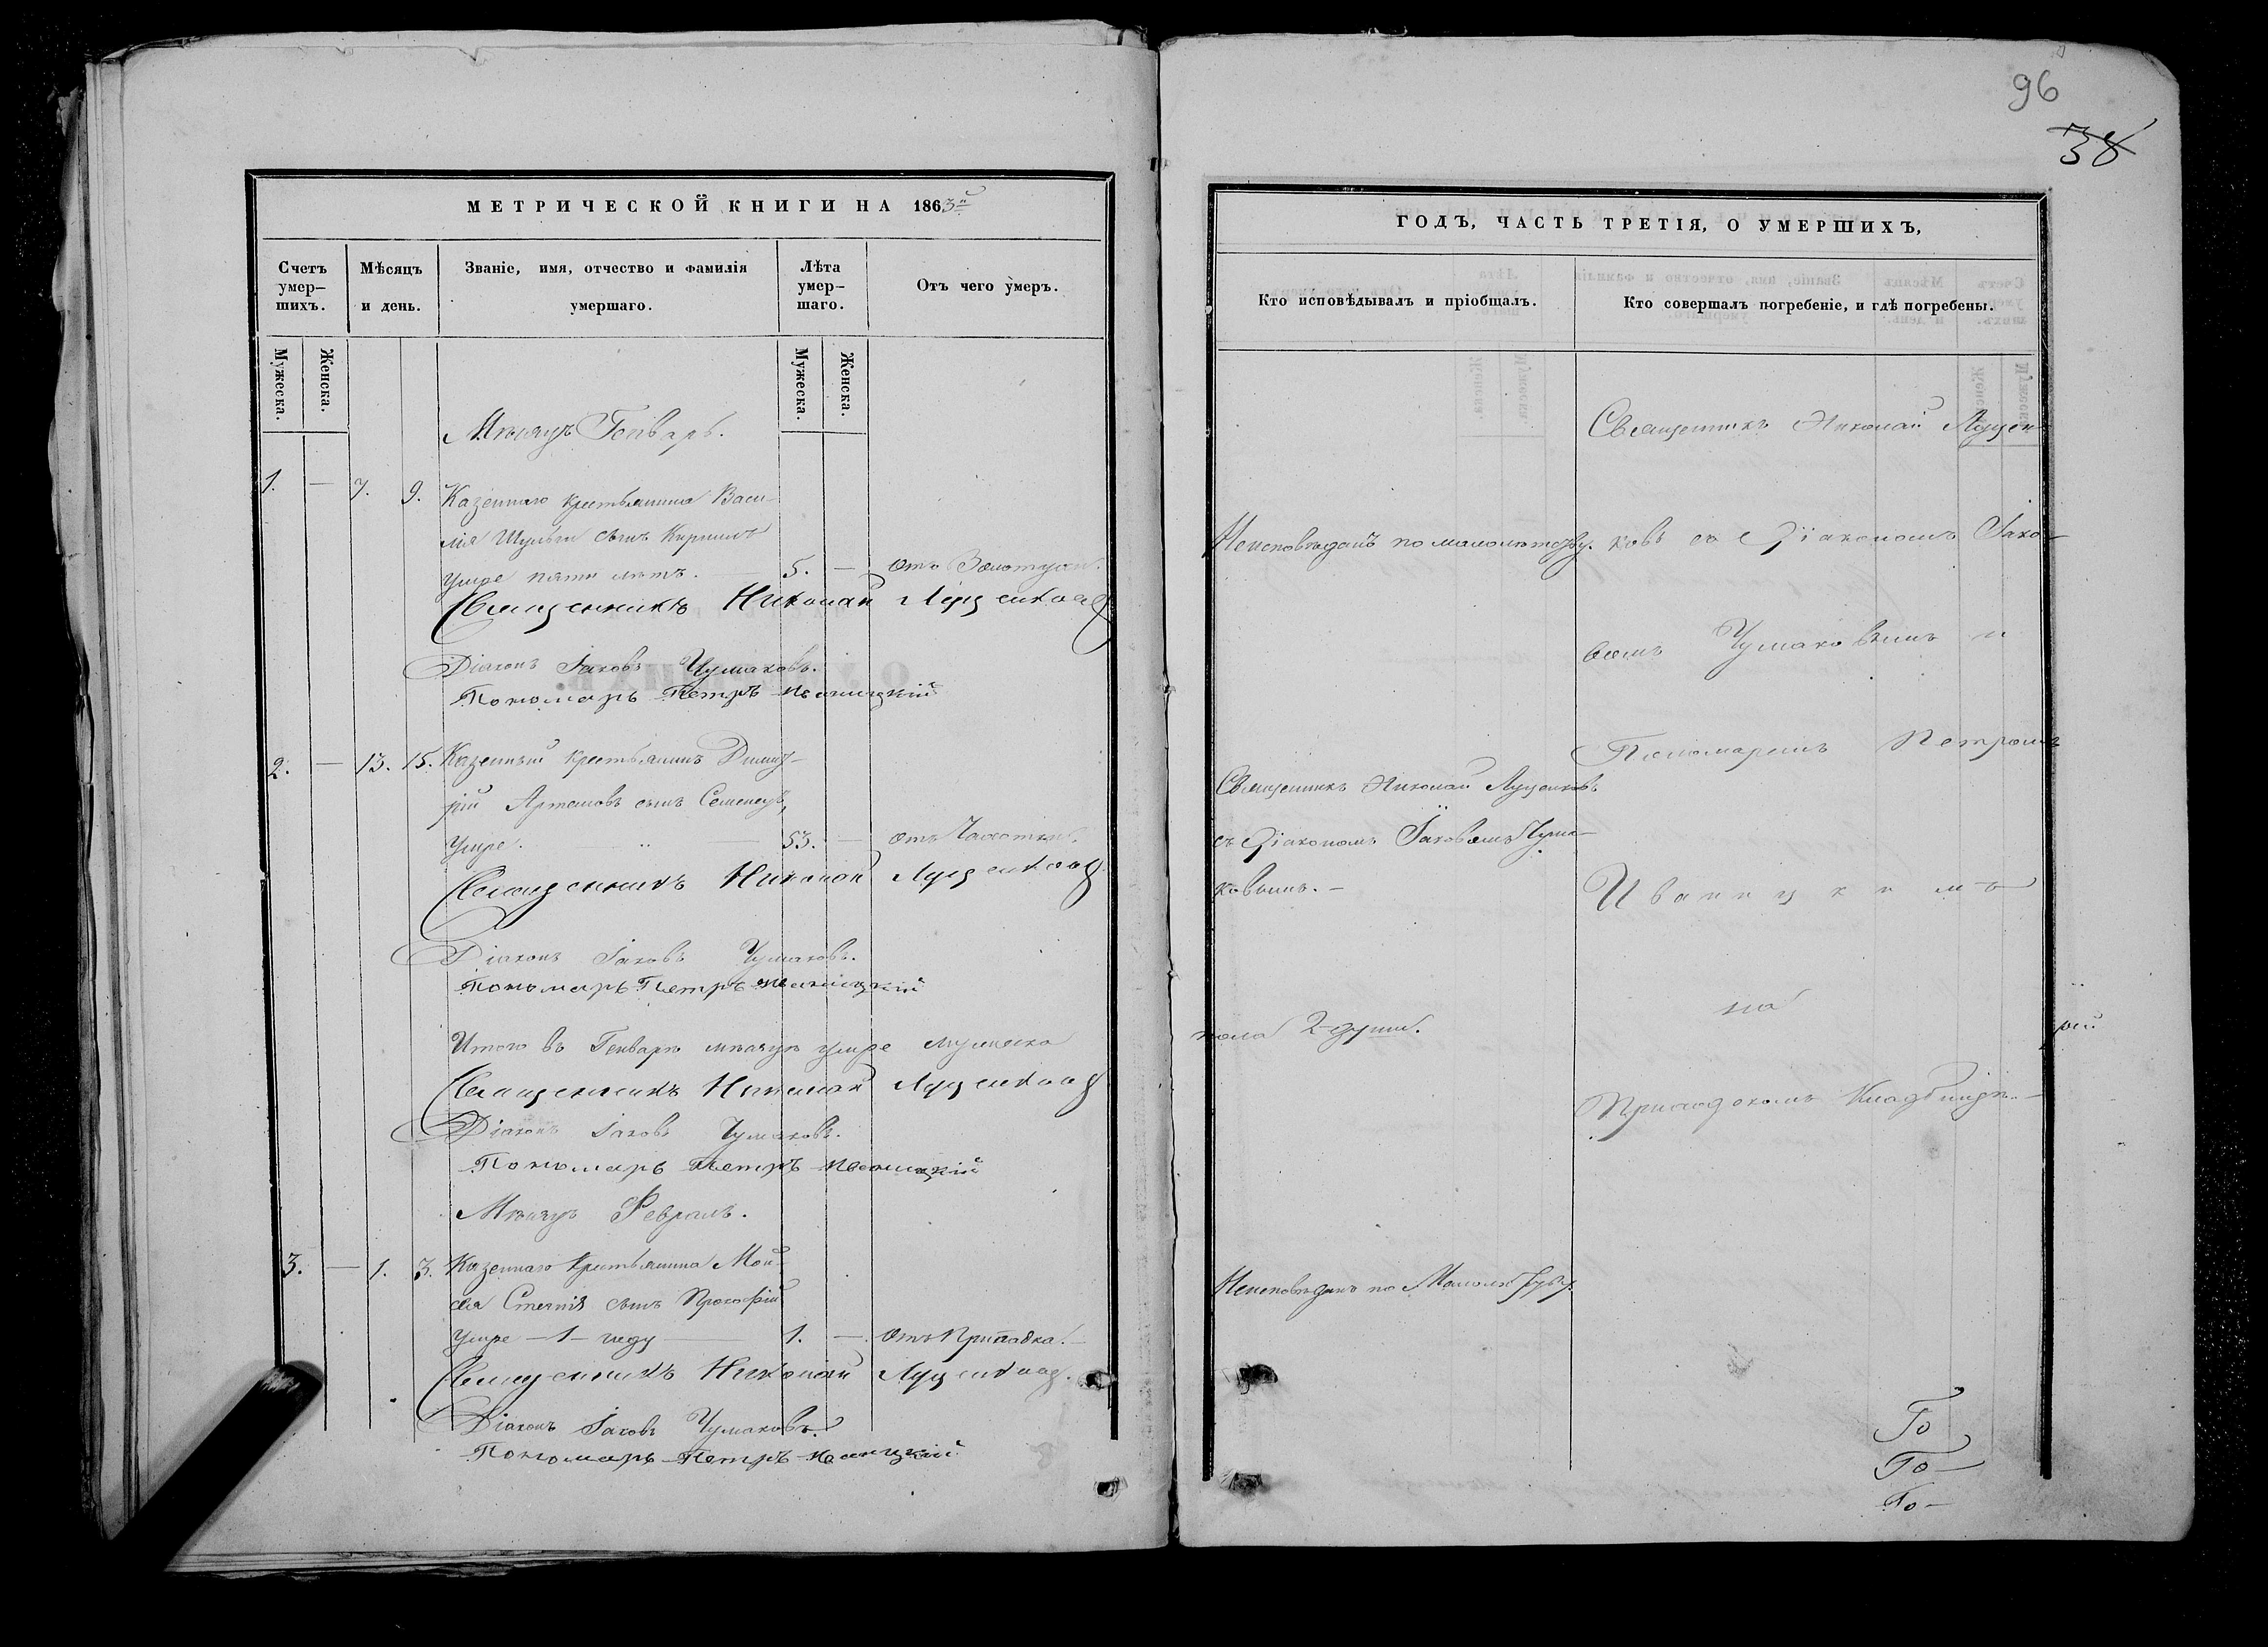 96
38
МЕТРИЧЕСКОЙ КНИГИ НА 1863й
Счетъ умер-шихъ.
Мѣсяцъ и день.
Званіе, имя, отчество и фамилія умершаго.
Лѣта умер-шаго.
Отъ чего умеръ.
Мужеска.
Женска.
Мужеска.
Женска.
Мѣсяцъ Генварь.
1. — 7. 9. Казеннаго крестьянина Васи-
лія Шульги сынъ Кириллъ
умре пяти лѣтъ. — 5. — отъ Золотухи.
Священникъ Николай Луценковъ
Діаконъ Іаковъ Чумаковъ.
Пономарь Петръ Иваницкій
2. — 13. 15. Казенный крестьянинъ Дими-
рій Артемовъ сынъ Семенецъ,
умре. — 53. — отъ Чахотки.
Священникъ Николай Луценковъ
Діаконъ Іаковъ Чумаковъ.
Пономарь Петръ Иваницкій
Итого въ Генварѣ мѣсяцѣ умре мужеска
Священникъ Николай Луценковъ
Діаконъ Іаковъ Чумаковъ.
Пономарь Петръ Иваницкій
Мѣсяцъ Февраль.
3. — 1. 3. Казеннаго крестьянина Мои-
сея сынъ Прокофій
умре — 1 — году — 1. — отъ Припадка.
Священникъ Николай Луценковъ.
Діаконъ Іаковъ Чумаковъ.
Пономарь Петръ Иваницкій
ГОДЪ, ЧАСТЬ ТРЕТІЯ, О УМЕРШИХЪ,
Кто исповѣдывалъ и пріобщалъ.
Кто совершалъ погребеніе, и гдѣ погребены.
Неисповѣданъ по малолѣтству.
Священникъ Николай Луценковъ
съ Діакономъ Іаковомъ Чума-
ковымъ. —
пола 2 души.
Неисповѣданъ по Малолѣтству.
Священникъ Николай Луцен-
ковъ съ Діакономъ Іако-
вомъ Чумаковымъ и
Пономаремъ Петромъ
Иваницкимъ
на
Приходскомъ Кладбищѣ. —
То
То —
То —